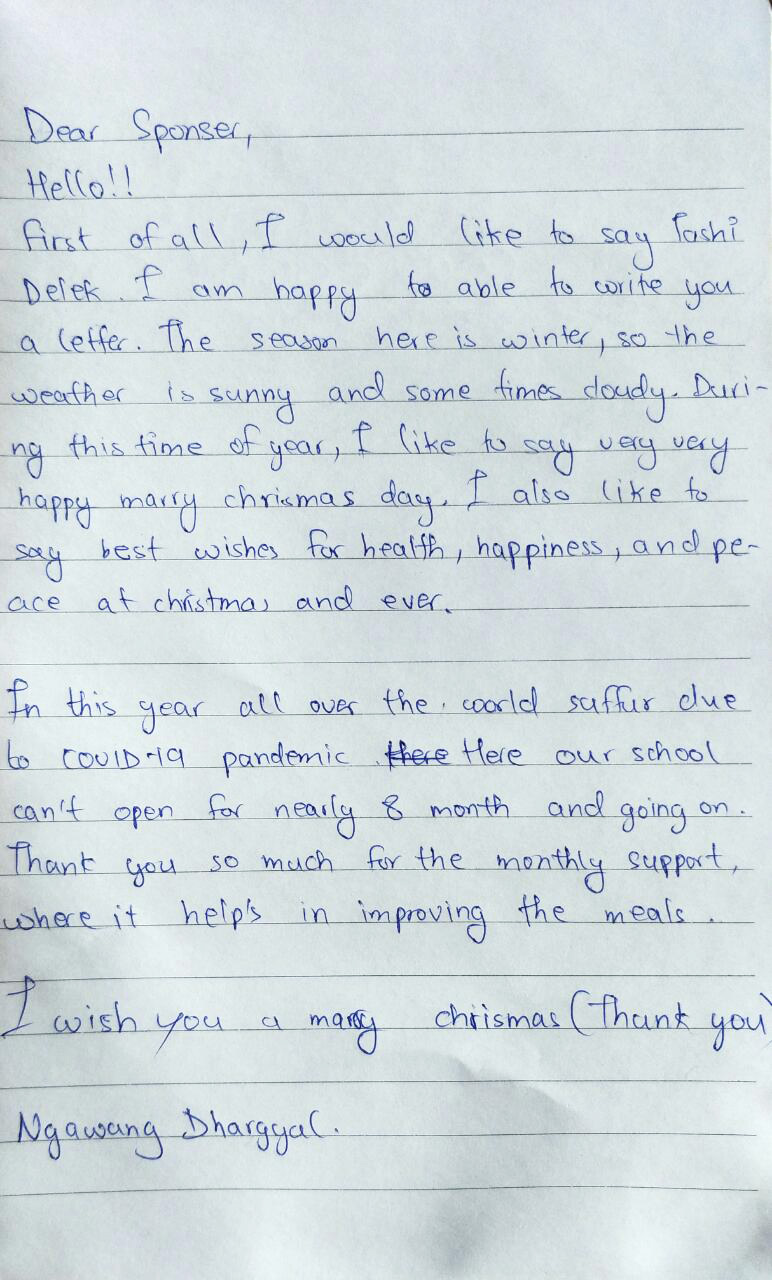 Dear Sponser,
Hello!!
first of all, I would like to say Tashi
Delek. I am happy to able to write you
a letter. The season here is winter, so the
weather is sunny and some times cloudy. Duri-
ng this time of year, I like to say very very
happy marry chrismas day. I also like to
say best wishes for health, happiness, and pe-
ace at christmas and ever.
In this year all over the world suffur due
to COVID-19 pandemic. there Here our school
can't open for nearly 8 month and going on.
Thank you so much for the monthly support,
where it help's in improving the meals.
I wish you a marry chrismas (Thank you)
Ngawang Dhargyal.